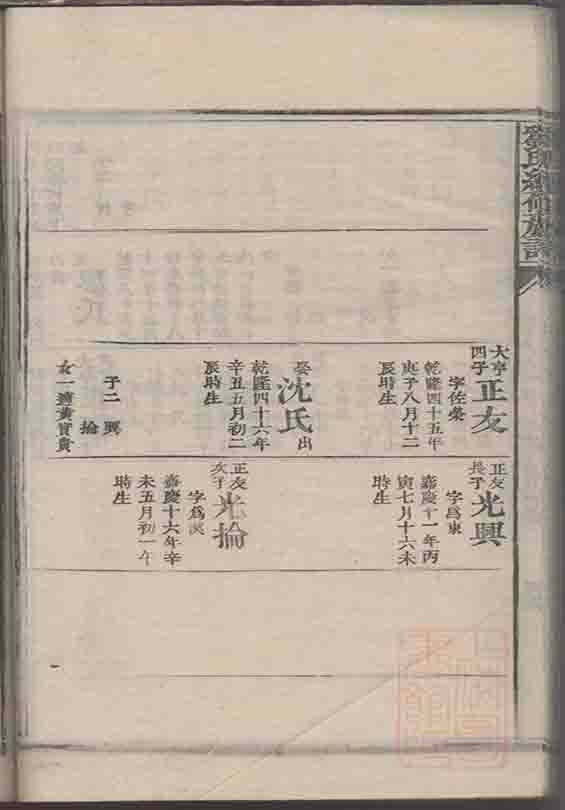 大亨四子正友
字佐榮
乾隆四十五年
庚子八月十二
辰時生
娶沈氏出
乾隆四十六年
辛丑五月初二
辰時生
子二 興
掄
女一適黃寶貴
正友長子光興
字為東
嘉慶十一年丙
寅七月十六未
時生
正友次子光掄
字為漢
嘉慶十六年辛
未五月初一午
時生